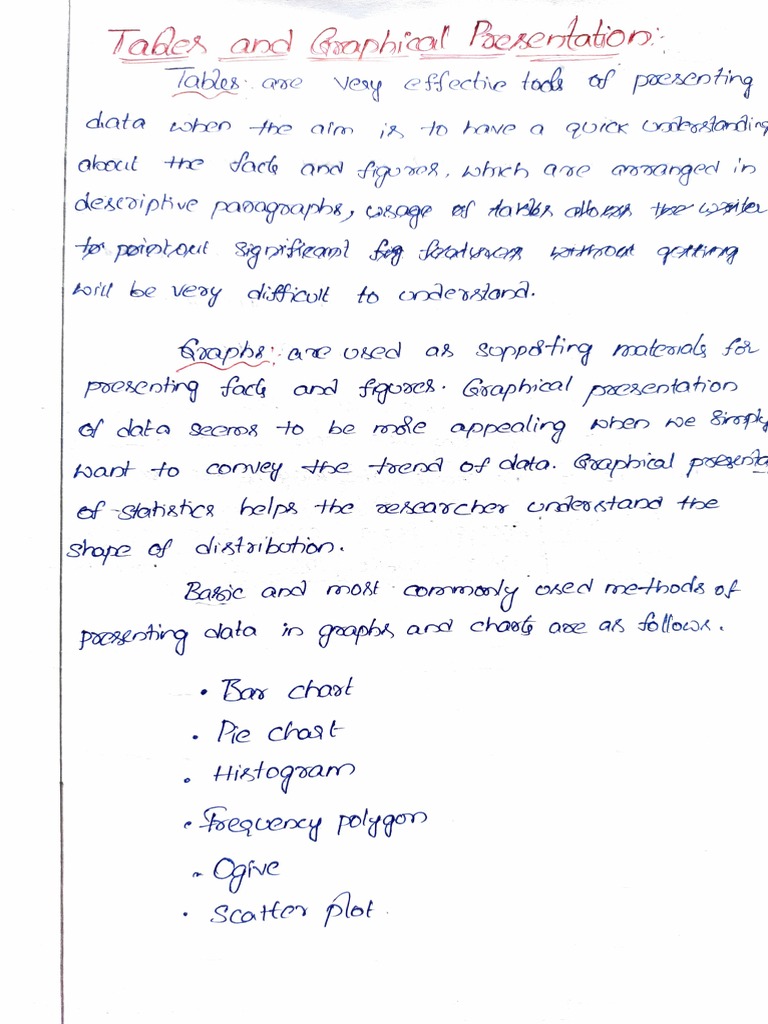 Tables and Graphical Presentation:
Tables: are very effective tools of presenting
data when the aim is to have a quick understanding
about the facts and figures, which are arranged in
descriptive paragraphs, usage of tables allows the writer
to point out significant fig features without getting
will be very difficult to understand.
Graphs: are used as supporting materials for
presenting facts and figures. Graphical presentation
of data seems to be more appealing when we simply
want to convey the trend of data. Graphical presenta
of statistics helps the researcher understand the
shape of distribution.
Basic and most commonly used methods of
presenting data in graphs and charts are as follows.
• Bar chart
• Pie chart
• Histogram
• Frequency polygon
• Ogive
• Scatter plot.